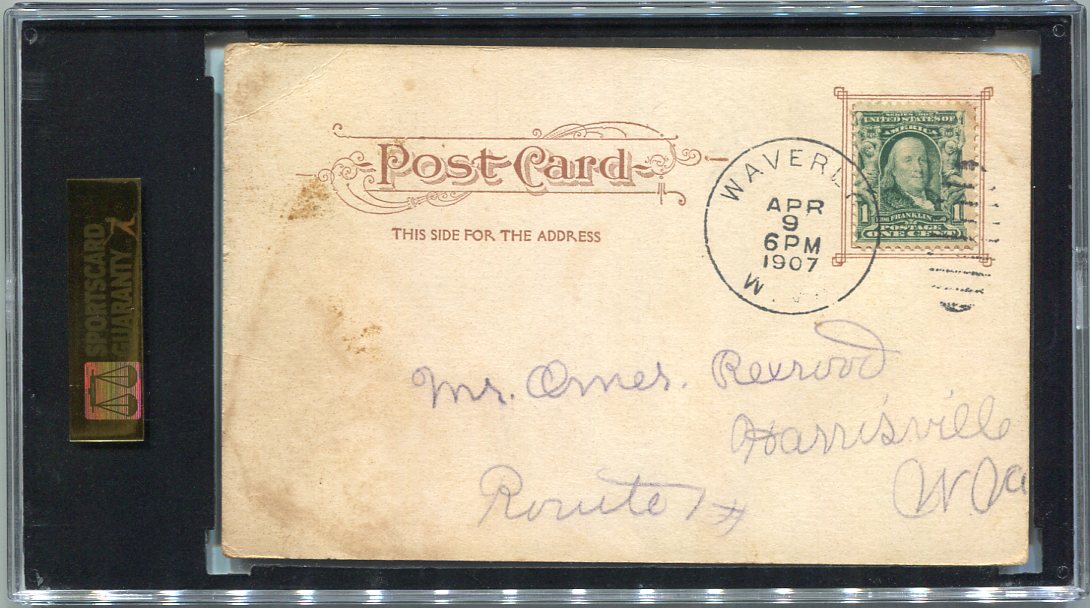 SPORTSCARD
GUARANTY
Post Card
THIS SIDE FOR THE ADDRESS
WAVERLY
APR
9
6PM
1907
W.VA.
SERIES 1902
UNITED STATES OF
AMERICA
1 FRANKLIN 1
POSTAGE
ONE CENT
Mr. Omer. Rexrood
Harrisville
Route 1 W. Va